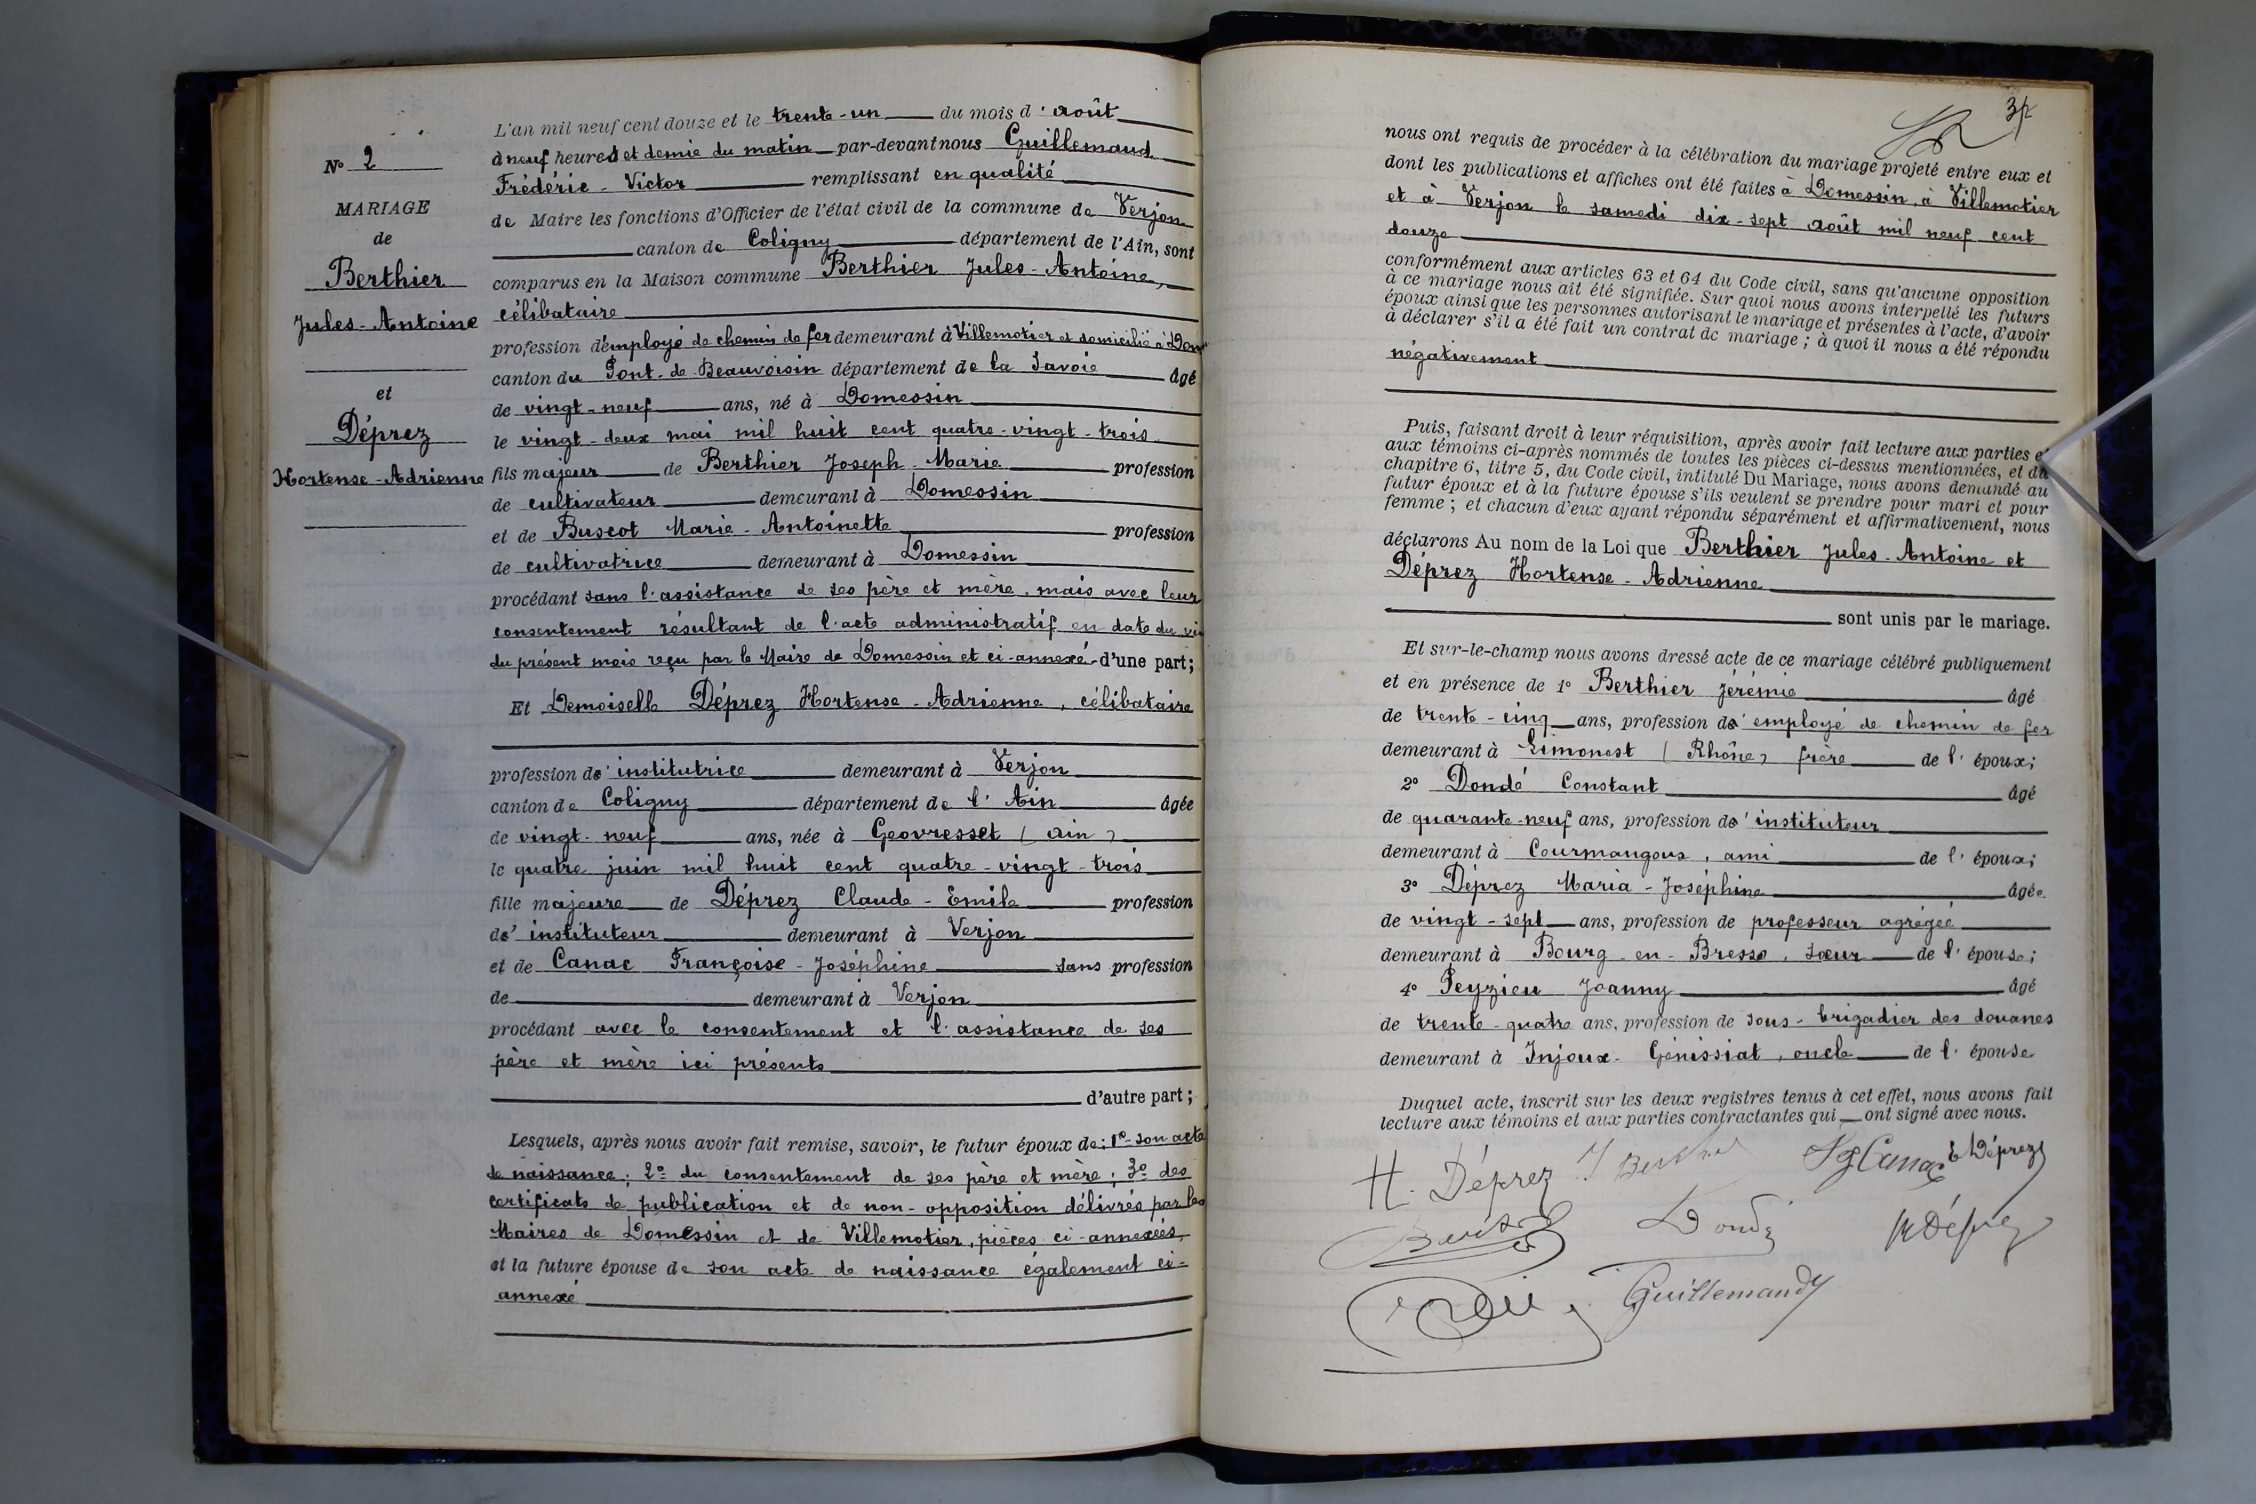 N° 2
MARIAGE
de
Berthier
Jules-Antoine
et
Déprez
Hortense-Adrienne
L'an mil neuf cent douze et le trente-un du mois d'août
à neuf heures et demie du matin par-devant nous Guillemaud
Frédéric-Victor remplissant en qualité
de Maire les fonctions d'Officier de l'état civil de la commune de Verjon
canton de Coligny département de l'Ain, sont
comparus en la Maison commune Berthier Jules-Antoine,
célibataire
profession d'employé de chemin de fer demeurant à Villemotier et domicilié à
canton du Pont-de-Beauvoisin département de la Savoie âgé
de vingt-neuf ans, né à Domessin
le vingt-deux mai mil huit cent quatre-vingt-trois
fils majeur de Berthier Joseph-Marie profession
de cultivateur demeurant à Domessin
et de Buscot Marie-Antoinette profession
de cultivatrice demeurant à Domessin
procédant sans l'assistance de ses père et mère, mais avec leur
consentement résultant de l'acte administratif en date du
du présent mois reçu par le Maire de Domessin et ci-annexé d'une part;
Et Demoiselle Déprez Hortense-Adrienne, célibataire
profession d'institutrice demeurant à Verjon
canton de Coligny département de l'Ain âgée
de vingt-neuf ans, née à Geovresset (Ain)
le quatre juin mil huit cent quatre-vingt-trois
fille majeure de Déprez Claude-Emile profession
d'instituteur demeurant à Verjon
et de Canac Françoise-Joséphine sans profession
de demeurant à Verjon
procédant avec le consentement et l'assistance de ses
père et mère ici présents
d'autre part;
Lesquels, après nous avoir fait remise, savoir, le futur époux de: 1° son acte
de naissance; 2° du consentement de ses père et mère; 3° des
certificats de publication et de non-opposition délivrés par les
Maires de Domessin et de Villemotier, pièces ci-annexées,
et la future épouse de son acte de naissance également ci-
annexé
nous ont requis de procéder à la célébration du mariage projeté entre eux et
dont les publications et affiches ont été faites à Domessin, à Villemotier
et à Verjon le samedi dix-sept août mil neuf cent
douze
conformément aux articles 63 et 64 du Code civil, sans qu'aucune opposition
à ce mariage nous ait été signifiée. Sur quoi nous avons interpellé les futurs
époux ainsi que les personnes autorisant le mariage et présentes à l'acte, d'avoir
à déclarer s'il a été fait un contrat de mariage; à quoi il nous a été répondu
négativement
Puis, faisant droit à leur réquisition, après avoir fait lecture aux parties et
aux témoins ci-après nommés de toutes les pièces ci-dessus mentionnées, et du
chapitre 6, titre 5, du Code civil, intitulé Du Mariage, nous avons demandé au
futur époux et à la future épouse s'ils veulent se prendre pour mari et pour
femme; et chacun d'eux ayant répondu séparément et affirmativement, nous
déclarons Au nom de la Loi que Berthier Jules-Antoine et
Déprez Hortense-Adrienne
sont unis par le mariage.
Et sur-le-champ nous avons dressé acte de ce mariage célébré publiquement
et en présence de 1° Berthier Jérémie âgé
de trente-cinq ans, profession d'employé de chemin de fer
demeurant à Limonest (Rhône) frère de l'époux;
2° Dondé Constant âgé
de quarante-neuf ans, profession d'instituteur
demeurant à Courmangoux, ami de l'époux;
3° Déprez Maria-Joséphine âgée
de vingt-sept ans, profession de professeur agrégée
demeurant à Bourg-en-Bresse, sœur de l'épouse;
4° Peyzieu Joanny âgé
de trente-quatre ans, profession de sous-brigadier des douanes
demeurant à Injoux-Génissiat, oncle de l'épouse
Duquel acte, inscrit sur les deux registres tenus à cet effet, nous avons fait
lecture aux témoins et aux parties contractantes qui ont signé avec nous.
H. Déprez J Berthier Canac E Déprez
Dondé M Déprez
Guillemaud